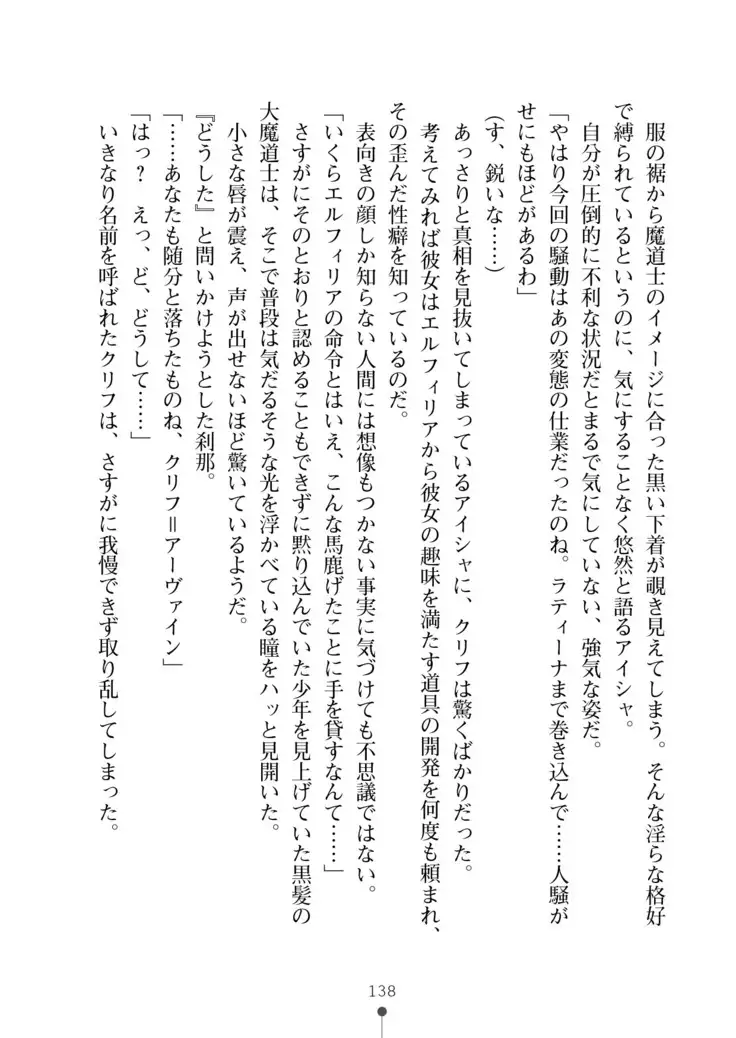 服の裾から魔道士のイメージに合った黒い下着が覗き見えてしまう。そんな淫らな格好
で縛られているというのに、気にすることなく悠然と語るアイシャ。
自分が圧倒的に不利な状況だとまるで気にしていない、強気な姿だ。
「やはり今回の騒動はあの変態の仕業だったのね。ラティーナまで巻き込んで……人騒が
せにもほどがあるわ」
(す、鋭いな……)
あっさりと真相を見抜いてしまっているアイシャに、クリフは驚くばかりだった。
考えてみれば彼女はエルフィリアから彼女の趣味を満たす道具の開発を何度も頼まれ、
その歪んだ性癖を知っているのだ。
表向きの顔しか知らない人間には想像もつかない事実に気づけても不思議ではない。
「いくらエルフィリアの命令とはいえ、こんな馬鹿げたことに手を貸すなんて……」
さすがにそのとおりと認めることもできずに黙り込んでいた少年を見上げていた黒髪の
大魔道士は、そこで普段は気だるそうな光を浮かべている瞳をハッと見開いた。
小さな唇が震え、声が出せないほど驚いているようだ。
『どうした』と問いかけようとした刹那。
「……あなたも随分と落ちたものね、クリフ＝アーヴァイン」
「はっ？　えっ、ど、どうして……」
いきなり名前を呼ばれたクリフは、さすがに我慢できず取り乱してしまった。
138